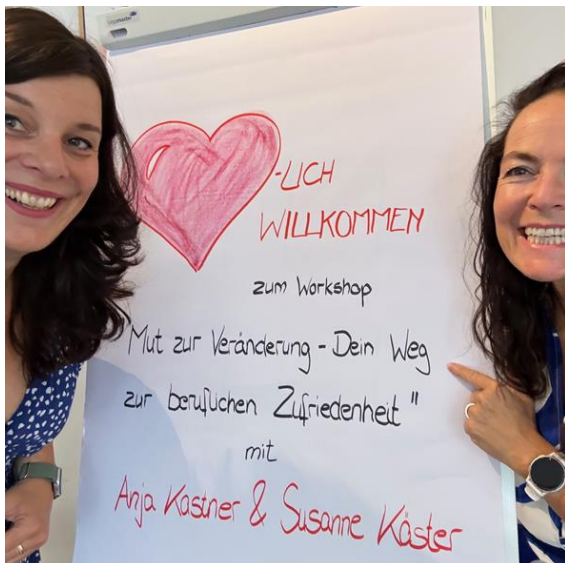 -LICH
WILLKOMMEN
zum Workshop
Mut zur Veränderung - Dein Weg
zur beruflichen Zufriedenheit"
mit
Anja Kastner & Susanne Käster